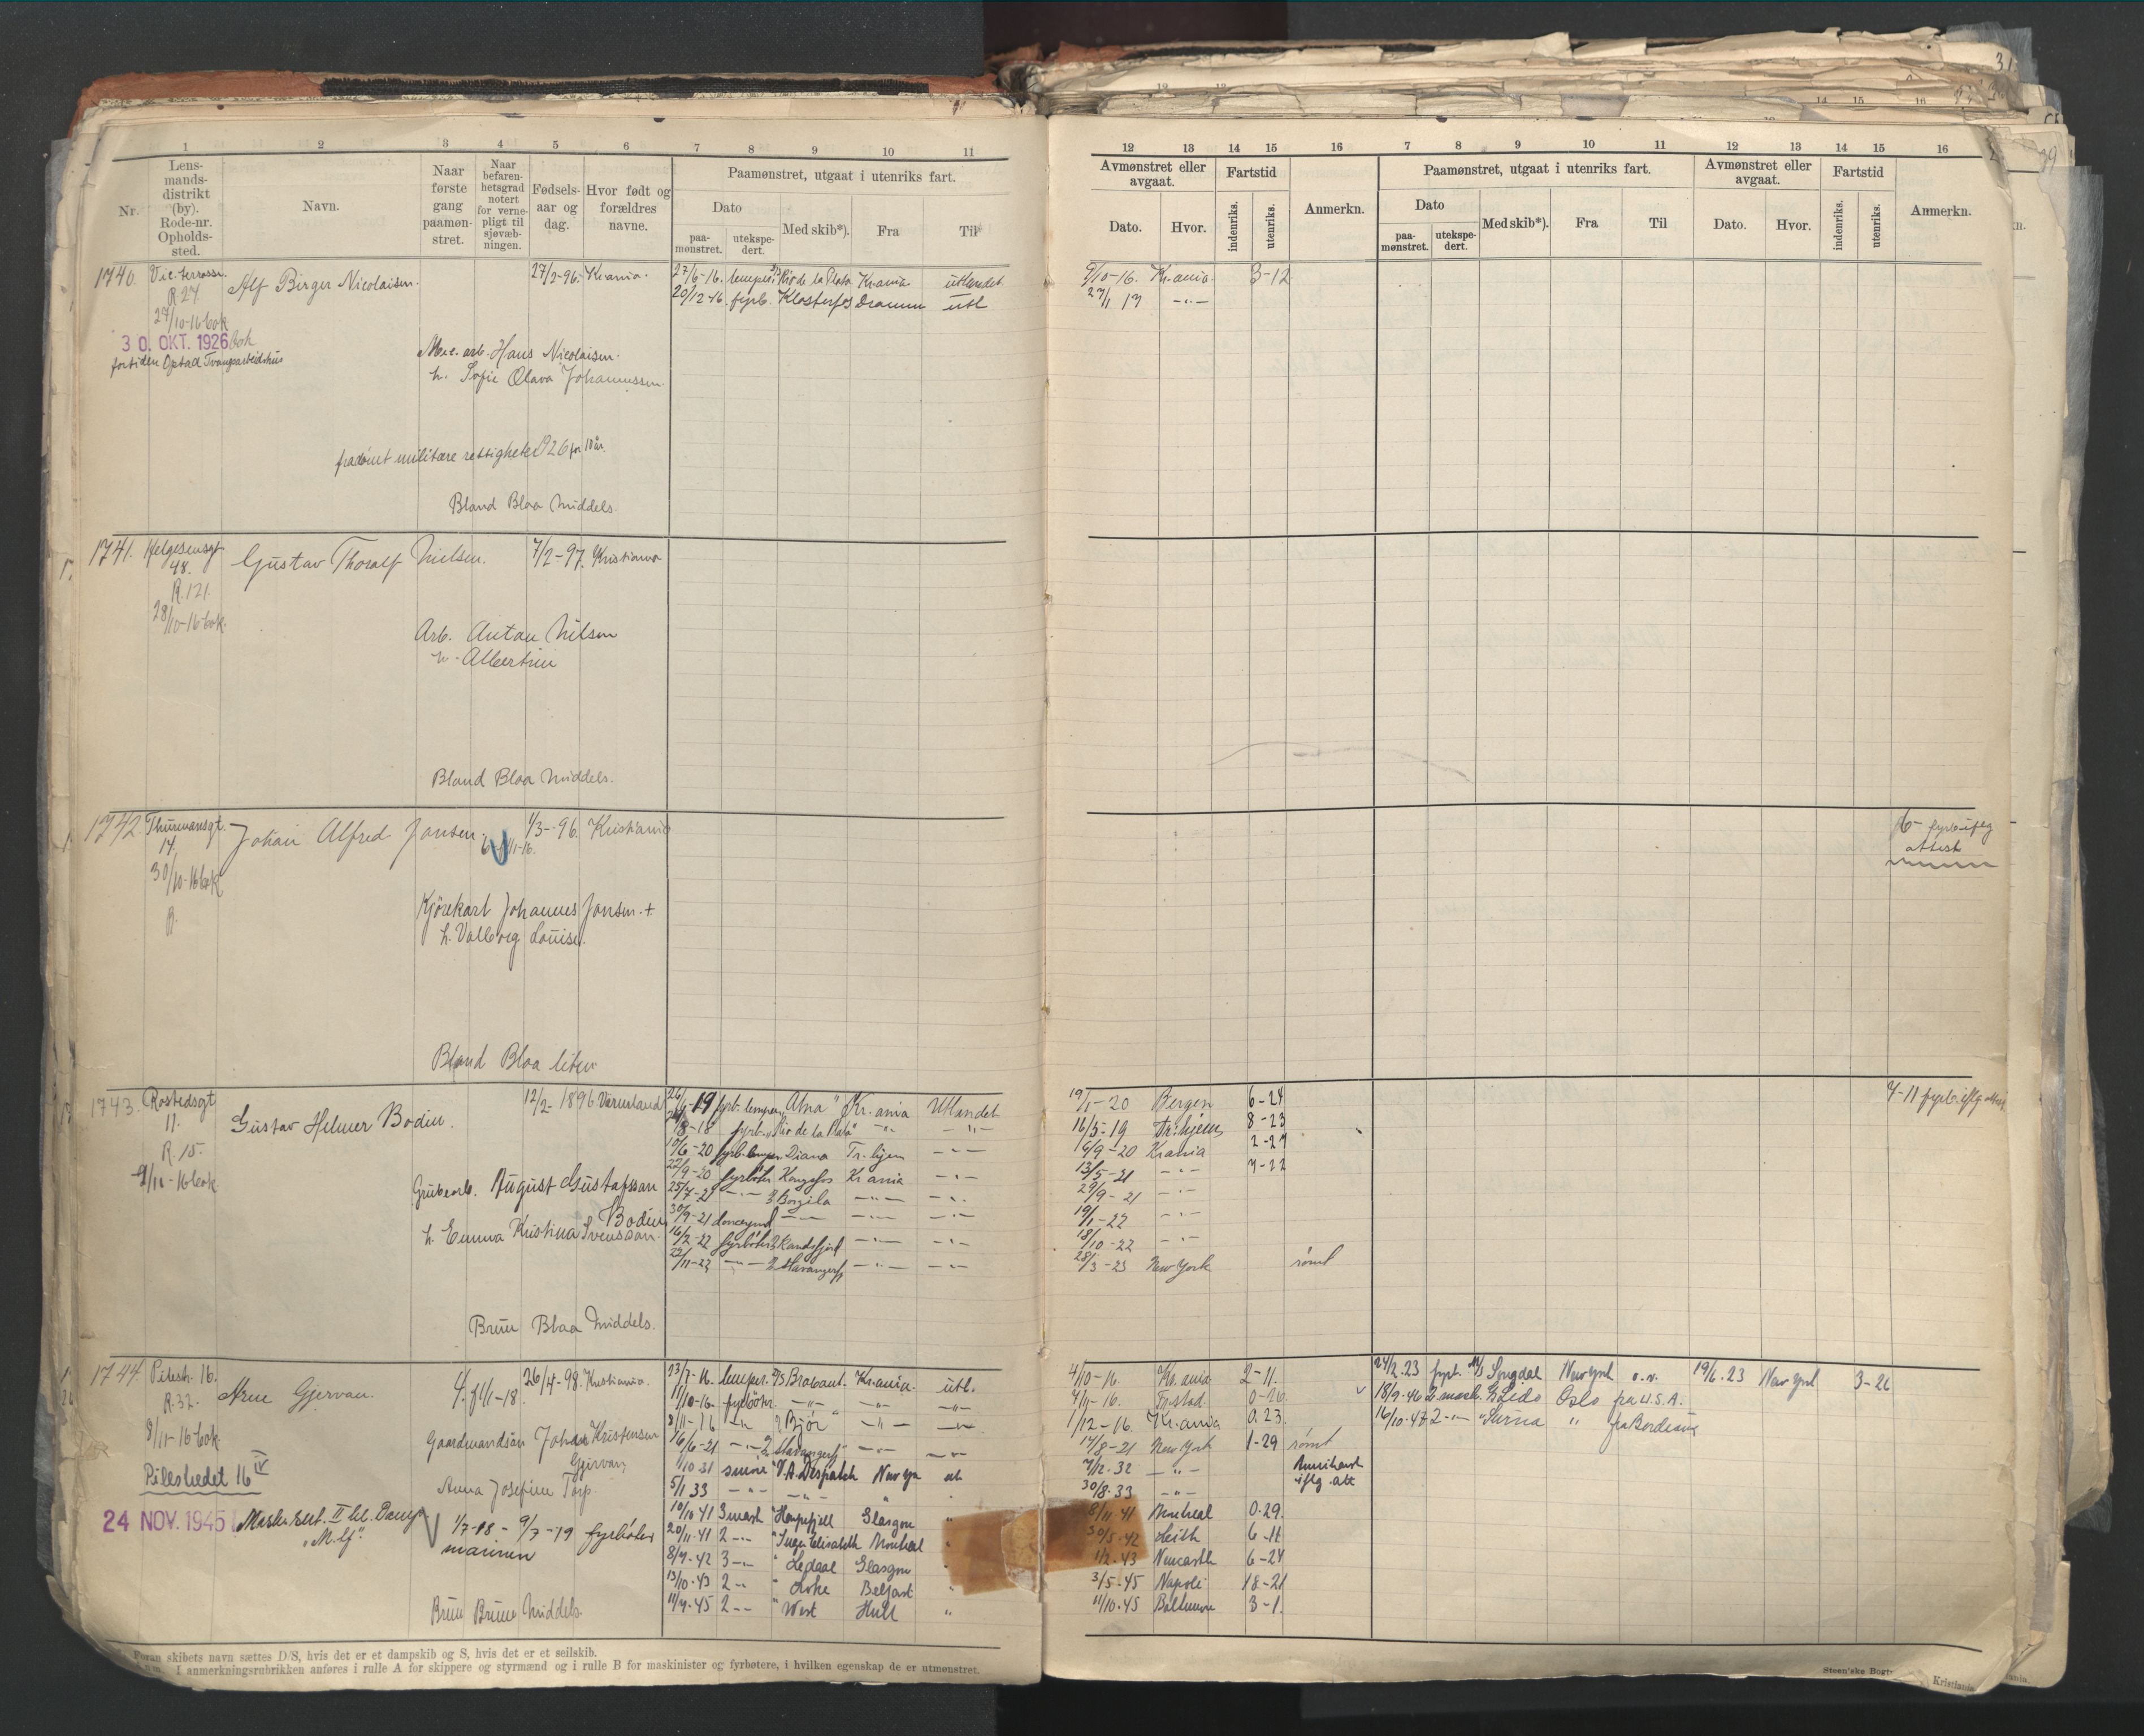 1 2 3 4 5 6 7 8 9 10 11
Nr.
Lens-
mands-
distrikt
(by).
Rode-nr.
Opholds-
sted.
Navn.
Naar
første
gang
paamøn-
stret.
Naar
befaren-
hetsgrad
notert
for verne-
pligt til
sjøvæb-
ningen.
Fødsels-
aar og
dag.
Hvor født og
forældres
navne.
Paamønstret, utgaat i utenriks fart.
Dato
paa-
mønstret.
utekspe-
dert.
Med skib*).
Fra
Til
12 13 14 15 16 7 8 9 10 11 12 13 14 15 16
Avmønstret eller
avgaat.
Dato. Hvor.
Fartstid
indenriks.
utenriks.
Anmerkn.
Paamønstret, utgaat i utenriks fart.
Dato
paa-
mønstret.
utekspe-
dert.
Med skib*).
Fra
Til
Avmønstret eller
avgaat.
Dato. Hvor.
Fartstid
indenriks.
utenriks.
Anmerkn.
1740. Vic. terrasse. Alf Birger Nicolaisen. 27/2-96. Kr.ania.
R.27
27/10-16 bok
30. OKT. 1926 bok
fortiden Opstad Tvangsarbeidshus
27/6-16. lemper Rio de la Plata Kr.ania utlandet 9/10-16. Kr.ania. 3-12
20/12-16. fyrb. Klosterfos Dramm utl 27/1 17 -"-
Mek. arb. Hans Nicolaisen.
h. Sofie Olava Johannessen.
fradømt militære rettigheter 1926 for 10 år.
Bland Blaa Middels.
1741. Helgesensgt Gustav Thoralf Nielsen. 7/2-97. Kristiania
48.
R.121.
28/10-16 bok.
Arb. Anton Nilsen
h. Albertine
Bland Blaa Middels.
1742. Thurmansgt. Johan Alfred Jansen. 1/3-96. Kristiania
14.
30/10-16 bok
6- fyrb iflg
attest
Kjørekarl Johannes Jansen. +
h. Valborg Louise.
Bland Blaa liten
1743. Rostedsgt Gustav Helmer Bodin. 12/2-1896 Värmland
11.
R.15.
9/11-16 bok
fyrb. lemper "Atna" Kr.ania Utlandet 19/1-20 Bergen 6-24
7-11 fyrb. iflg attest
/8-18 fyrb. "Rio de la Plata" -"- -"- 16/5-19 Tr:hjem 8-23
10/6-20 fyrb. lemper Diana Tr.hjem -"- 6/9-20 Kr.ania 2-27
22/9-20 fyrbøter Kongsfos Kr.ania -"- 13/5-21 -"- 7-22
25/7-21 -"- Borgila -"- -"- 29/9-21 -"-
30/9-21 donkeymd -"- -"- -"- 19/1-22 -"-
16/2-22 fyrbøter Randsfjord -"- -"- 18/10-22 -"-
22/11-22 -"- Stavangerfj -"- -"- 28/3-23 New York rømt
Grubearb. August Gustafsson
Bodin
h. Emma Kristina Svensson.
Brun Blaa Middels.
1744. Pilestr. 16. Arne Gjervan. 26/4-98. Kristiania.
R.32.
8/11-16 bok
Pilestredet 16 IV
24 NOV. 1945
Mask. sert. II kl. Damp
"M. lf".
Gaardmandsøn Johan Kristensen
Gjervan
Anna Josefine Torp.
1/7-18 - 9/7-19 fyrbøter
marinen
Brun Brune Middels.
23/7-16. lemper. D/S Brabant. Kr.ania. utl. 4/10-16. Kr.ania 2-11.
11/10-16. fyrbøter. -"- -"- -"- 4/11-16. Fr.stad. 0-20
3/11-16 -"- Bjør -"- -"- 1/12-16. Kr.ania 0.23.
16/6-21 -"- Stavangerfj -"- -"- 14/8-21 New York 1-29 rømt
1/10 31 smører V.A. Despatch New York utl 7/12.32 -"- Amerikansk
5/1 33 -"- -"- 30/8.33 -"- iflg. att
10/10 41 3 mask "Høegfjell Glasgow 8/11 41 Montreal 0.29.
20/11.41 2 -"- "Inger Elisabeth Montreal 30/5.42 Leith 6-11
8/9-42 3 -"- Ledaal Glasgow 1/2.43 Newcastle 6-24
13/10-43 2 -"- Loke Belfast 3/5.45 Napoli 18-21
11/7.45 2 -"- "West Hull 11/10.45 Baltimore 3-1.
24/2.23 fyrb. M/S Songdal New York o.v. 19/6.23 New York 3-26
18/9-46 2 mask. Lido Oslo fra U.S.A.
16/10-47 2 -"- "Surna " fra Bordeaux
Foran skibets navn sættes D/S, hvis det er et dampskib og S, hvis det er et seilskib.
I anmerkningsrubrikken anføres i rulle A for skippere og styrmænd og i rulle B for maskinister og fyrbøtere, i hvilken egenskap de er utmønstret.
Steen'ske Bogtr
Kristiania.